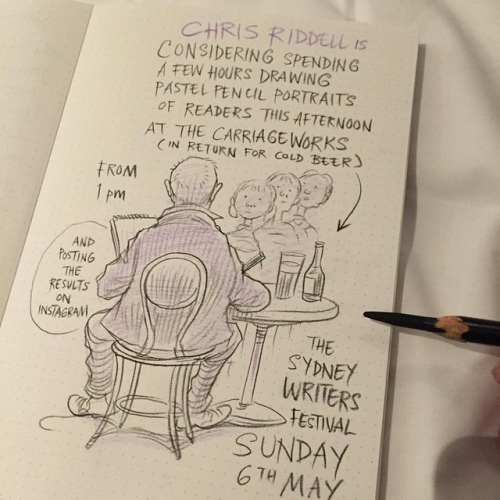 CHRIS RIDDELL IS
CONSIDERING SPENDING
A FEW HOURS DRAWING
PASTEL PENCIL PORTRAITS
OF READERS THIS AFTERNOON
AT THE CARRIAGEWORKS
(IN RETURN FOR COLD BEER)
FROM
1 pm
AND
POSTING
THE
RESULTS
ON
INSTAGRAM
THE
SYDNEY
WRITERS
FESTIVAL
SUNDAY
6TH MAY